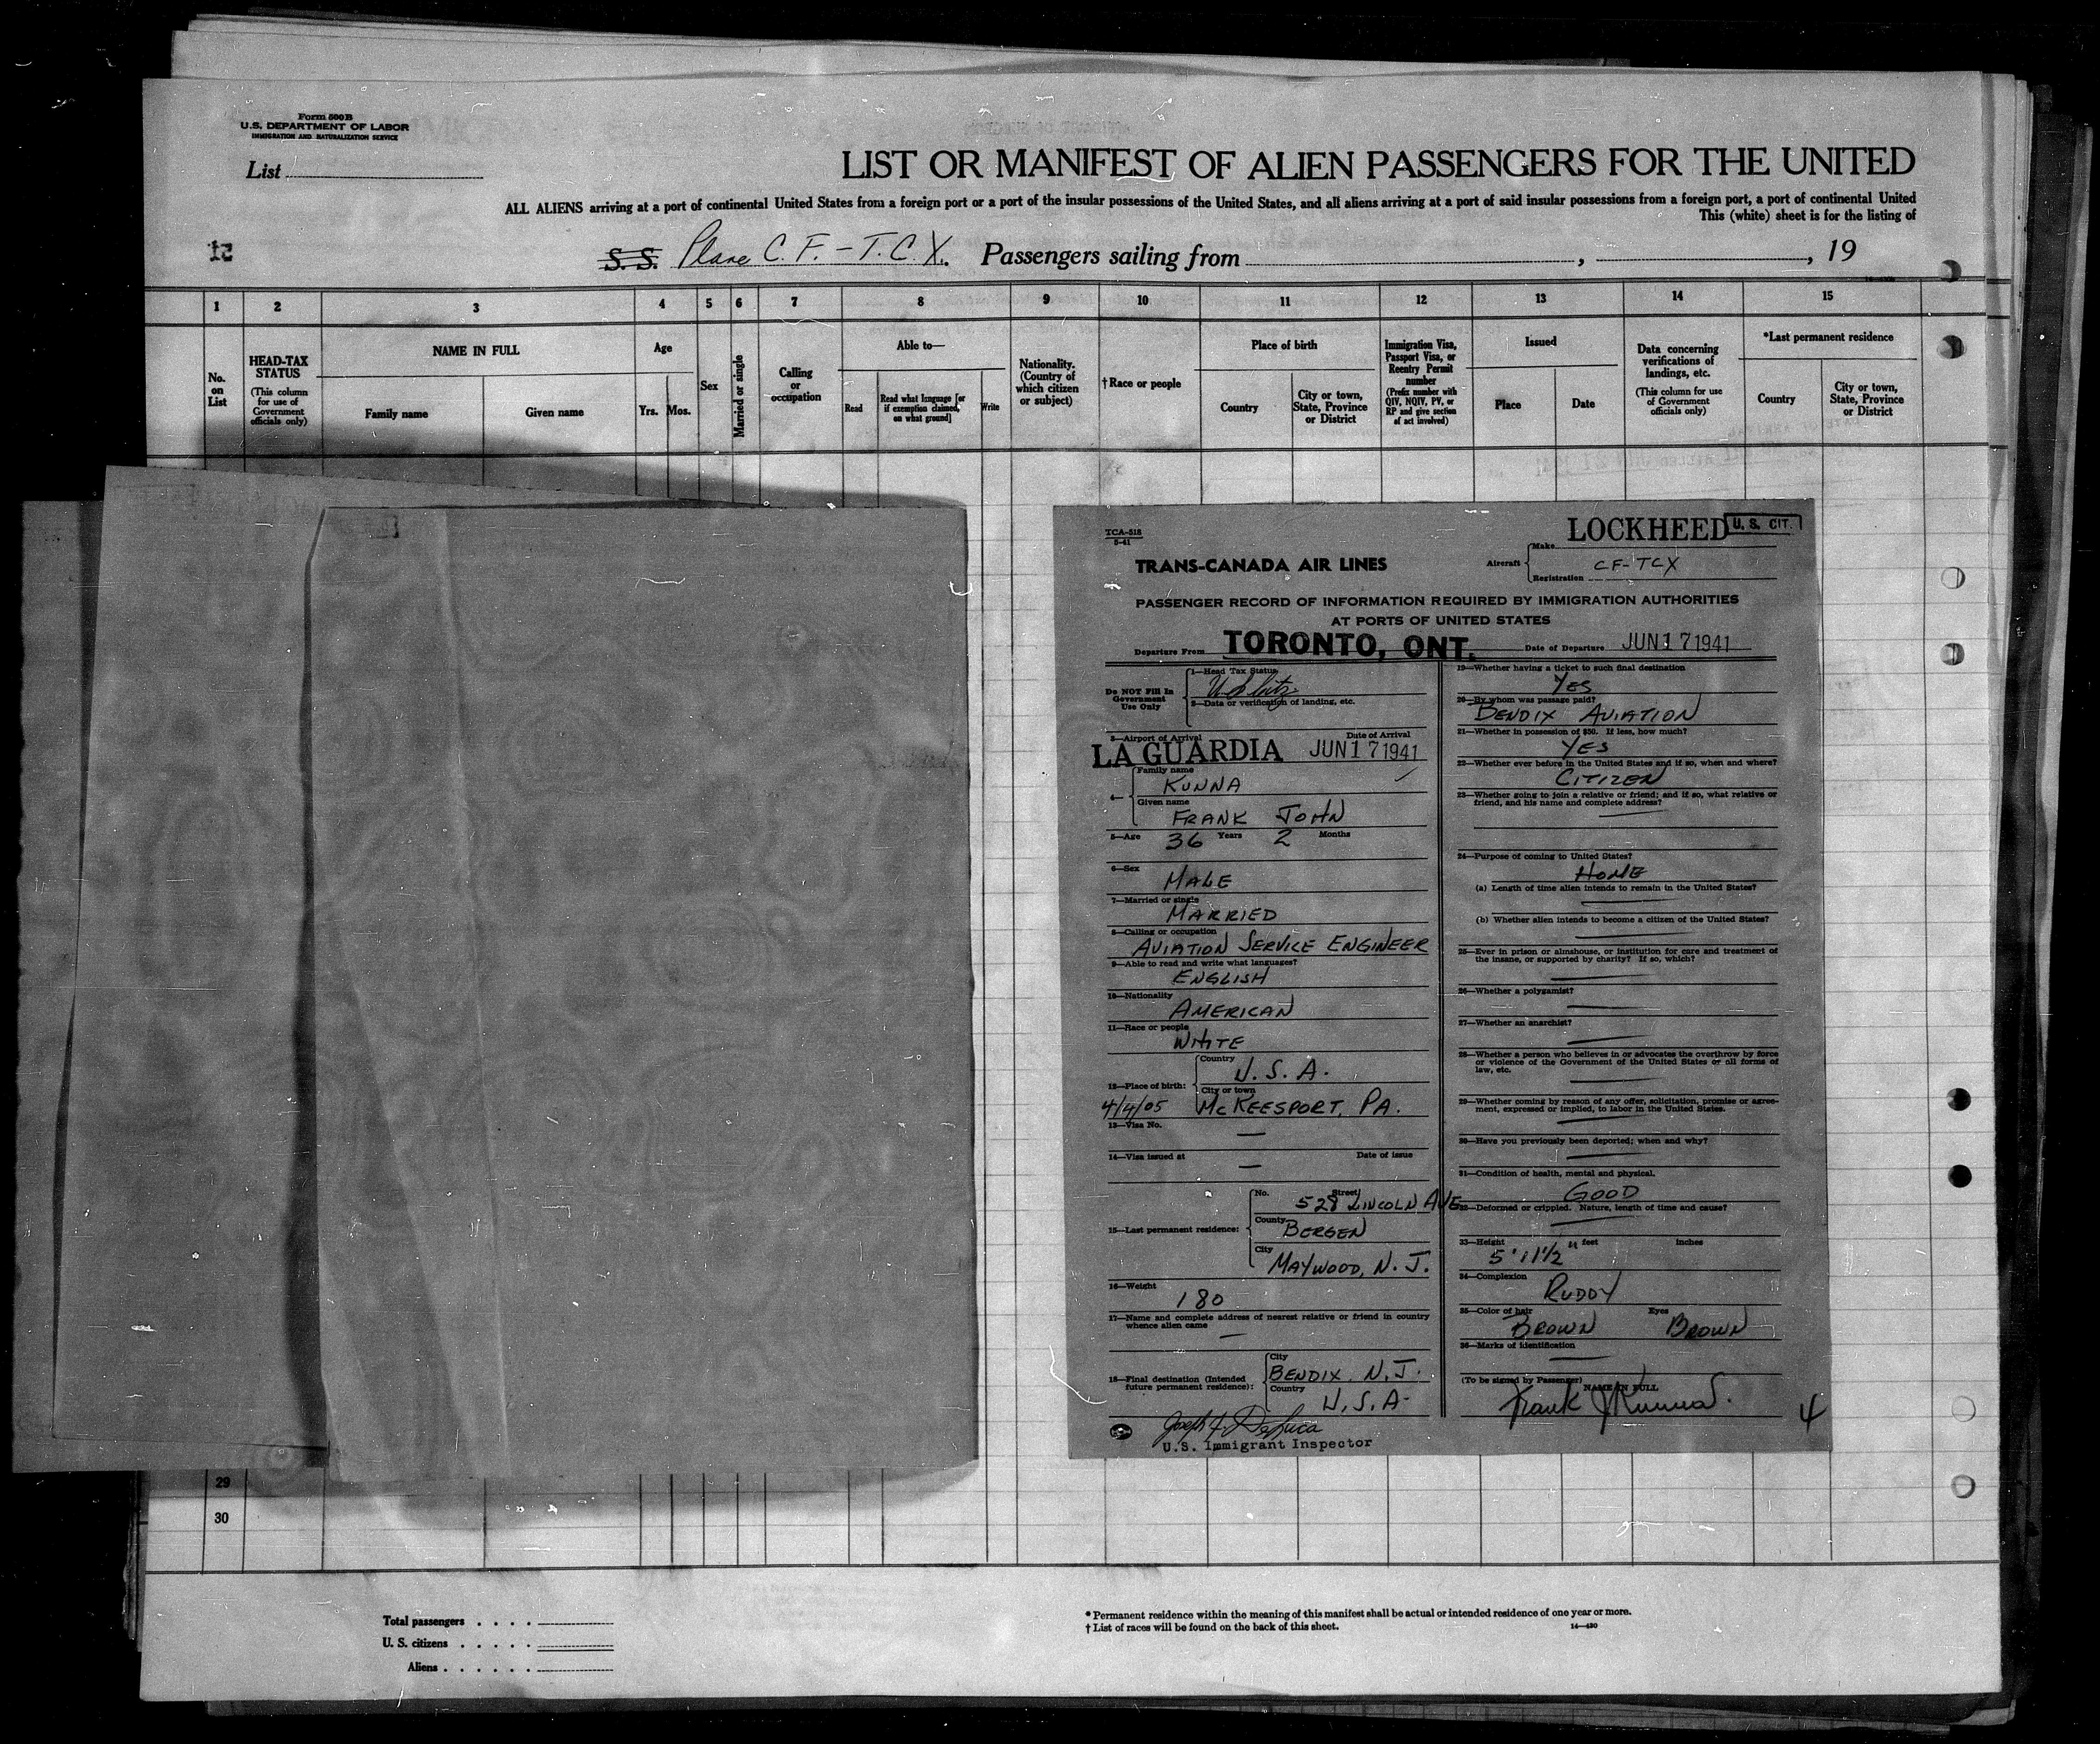 Form 500B
U.S. DEPARTMENT OF LABOR
IMMIGRATION AND NATURALIZATION SERVICE
List
LIST OR MANIFEST OF ALIEN PASSENGERS FOR THE UNITED
ALL ALIENS arriving at a port of continental United States from a foreign port or a port of the insular possessions of the United States, and all aliens arriving at a port of said insular possessions from a foreign port, a port of continental United
This (white) sheet is for the listing of
S. S. Plane C. F. - T. C. X. Passengers sailing from , , 19
1 2 3 4 5 6 7 8 9 10 11 12 13 14 15
No. on List
HEAD-TAX STATUS
(This column for use of Government officials only)
NAME IN FULL
Family name Given name
Age
Yrs. Mos.
Sex
Married or single
Calling or occupation
Able to—
Read
Read what language [or if exemption claimed, on what ground]
Write
Nationality. (Country of which citizen or subject)
†Race or people
Place of birth
Country
City or town, State, Province or District
Immigration Visa, Passport Visa, or Reentry Permit number
(Prefix number with QIV, NQIV, PV, or RP and give section of act involved)
Issued
Place Date
Data concerning verifications of landings, etc.
(This column for use of Government officials only)
*Last permanent residence
Country
City or town, State, Province or District
TCA-518
5-41
LOCKHEED U. S. CIT.
TRANS-CANADA AIR LINES
Aircraft
Make
Registration CF-TCX
PASSENGER RECORD OF INFORMATION REQUIRED BY IMMIGRATION AUTHORITIES
AT PORTS OF UNITED STATES
Departure From TORONTO, ONT. Date of Departure JUN 17 1941
Do NOT Fill In Government Use Only
1—Head Tax Status
2—Data or verification of landing, etc.
3—Airport of Arrival Date of Arrival
LA GUARDIA JUN 17 1941
4—
Family name
KUNNA
Given name
FRANK JOHN
5—Age 36 Years 2 Months
6—Sex
MALE
7—Married or single
MARRIED
8—Calling or occupation
AVIATION SERVICE ENGINEER
9—Able to read and write what languages?
ENGLISH
10—Nationality
AMERICAN
11—Race or people
WHITE
12—Place of birth:
Country
U. S. A.
City or town
4/4/05 MCKEESPORT, PA.
13—Visa No.
—
14—Visa issued at Date of issue
—
15—Last permanent residence:
No. Street
528 LINCOLN AVE
County
BERGEN
City
MAYWOOD, N. J.
16—Weight
180
17—Name and complete address of nearest relative or friend in country whence alien came
—
18—Final destination (Intended future permanent residence):
City
BENDIX. N. J.
Country
U. S. A.
U.S. Immigrant Inspector
19—Whether having a ticket to such final destination
YES
20—By whom was passage paid?
BENDIX AVIATION
21—Whether in possession of $50. If less, how much?
YES
22—Whether ever before in the United States and if so, when and where?
CITIZEN
23—Whether going to join a relative or friend; and if so, what relative or
friend, and his name and complete address?
24—Purpose of coming to United States?
HOME
(a) Length of time alien intends to remain in the United States?
(b) Whether alien intends to become a citizen of the United States?
25—Ever in prison or almshouse, or institution for care and treatment of
the insane, or supported by charity? If so, which?
26—Whether a polygamist?
27—Whether an anarchist?
28—Whether a person who believes in or advocates the overthrow by force
or violence of the Government of the United States or all forms of
law, etc.
29—Whether coming by reason of any offer, solicitation, promise or agree-
ment, expressed or implied, to labor in the United States.
30—Have you previously been deported; when and why?
31—Condition of health, mental and physical.
GOOD
32—Deformed or crippled. Nature, length of time and cause?
33—Height feet inches
5' 11½"
34—Complexion
RUDDY
35—Color of hair Eyes
BROWN BROWN
36—Marks of identification
(To be signed by Passenger) NAME IN FULL
Frank J Kunna
4
29
30
Total passengers
U. S. citizens
Aliens
*Permanent residence within the meaning of this manifest shall be actual or intended residence of one year or more.
†List of races will be found on the back of this sheet.
14—430